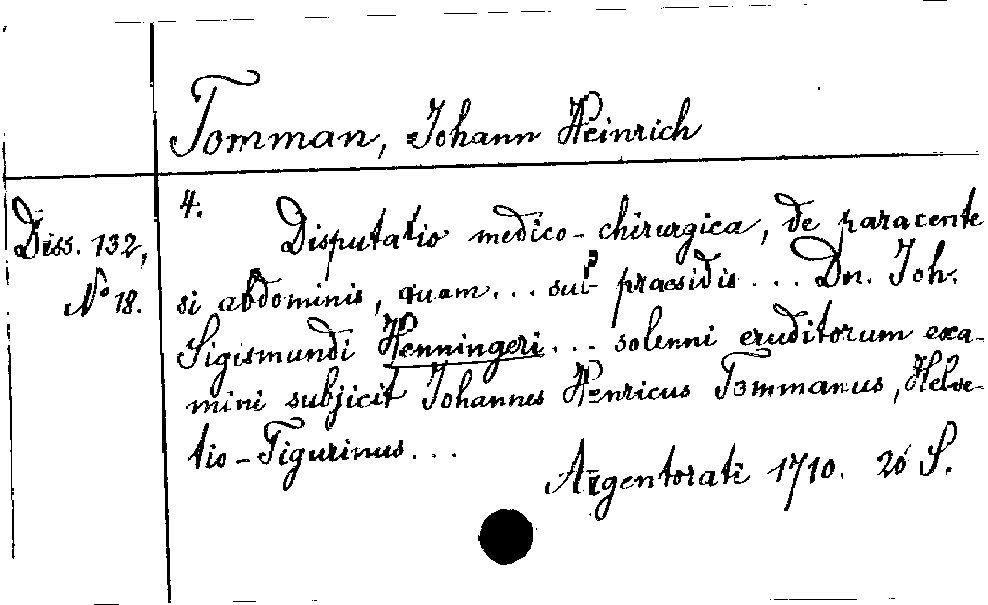 Tomman, Johann Heinrich
4.
Diss. 132,
No 18.
Disputatio medico-chirurgica, de paracente
si abdominis, quam... sub praesidis... Dn. Joh.
Sigismundi Henningeri... solenni eruditorum exa-
mini subjicit Johannes Henricus Tommanus, Helve-
tio-Tigurinus...
Argentorati 1710. 20 S.